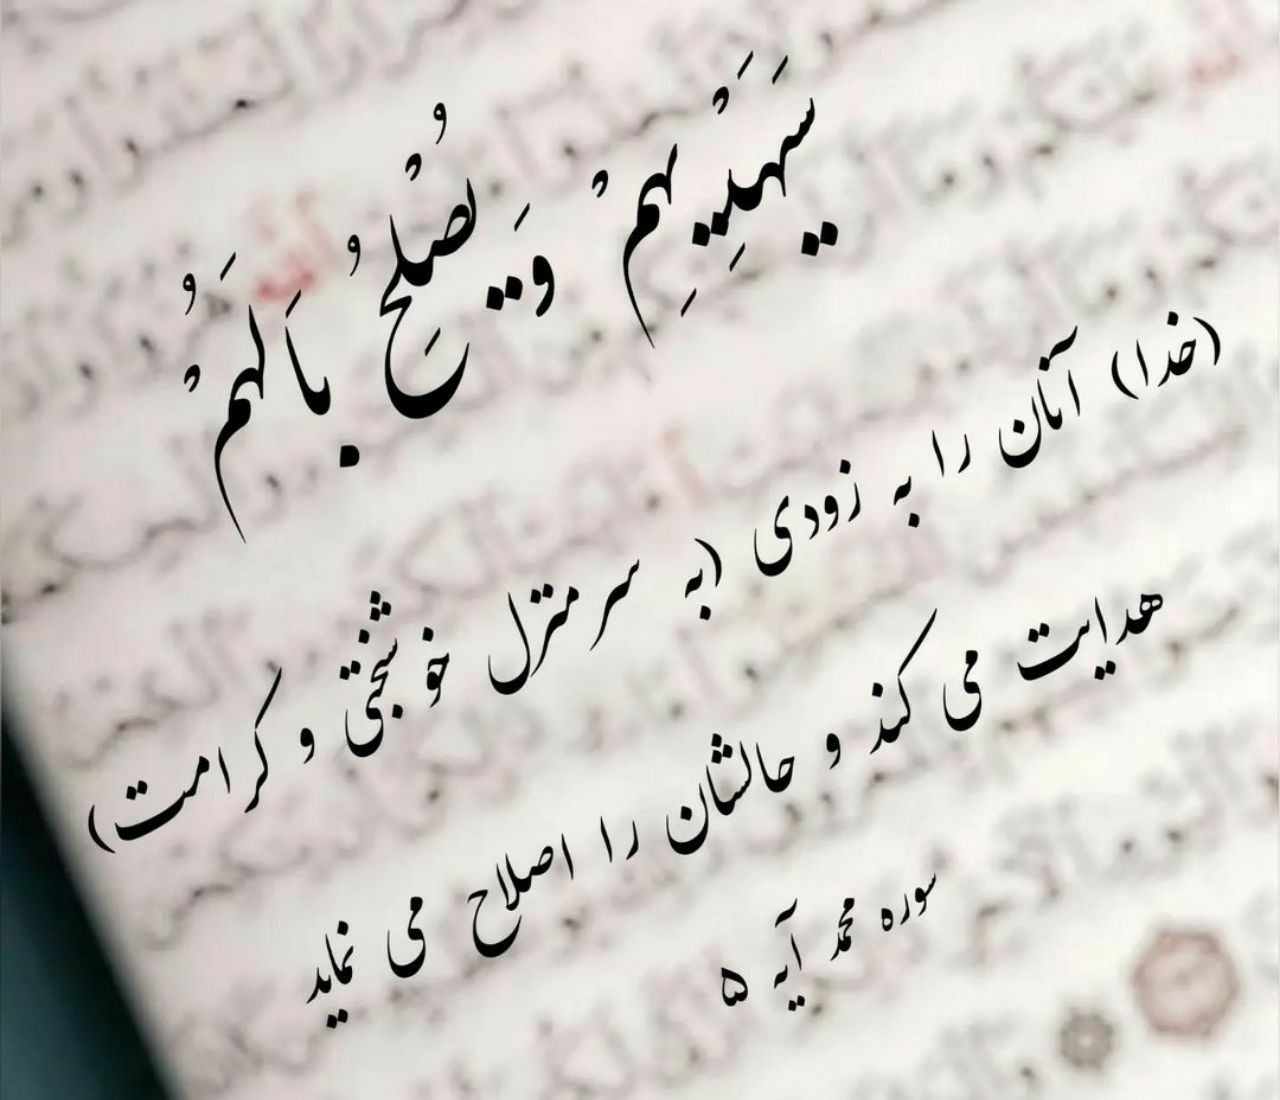 سَیَهْدِیهِمْ وَیُصْلِحُ بَالَهُمْ
(خدا) آنان را به زودی (به سر منزل خوشبختی و کرامت)
هدایت می کند و حالشان را اصلاح می نماید
سوره محمد آیه ۵